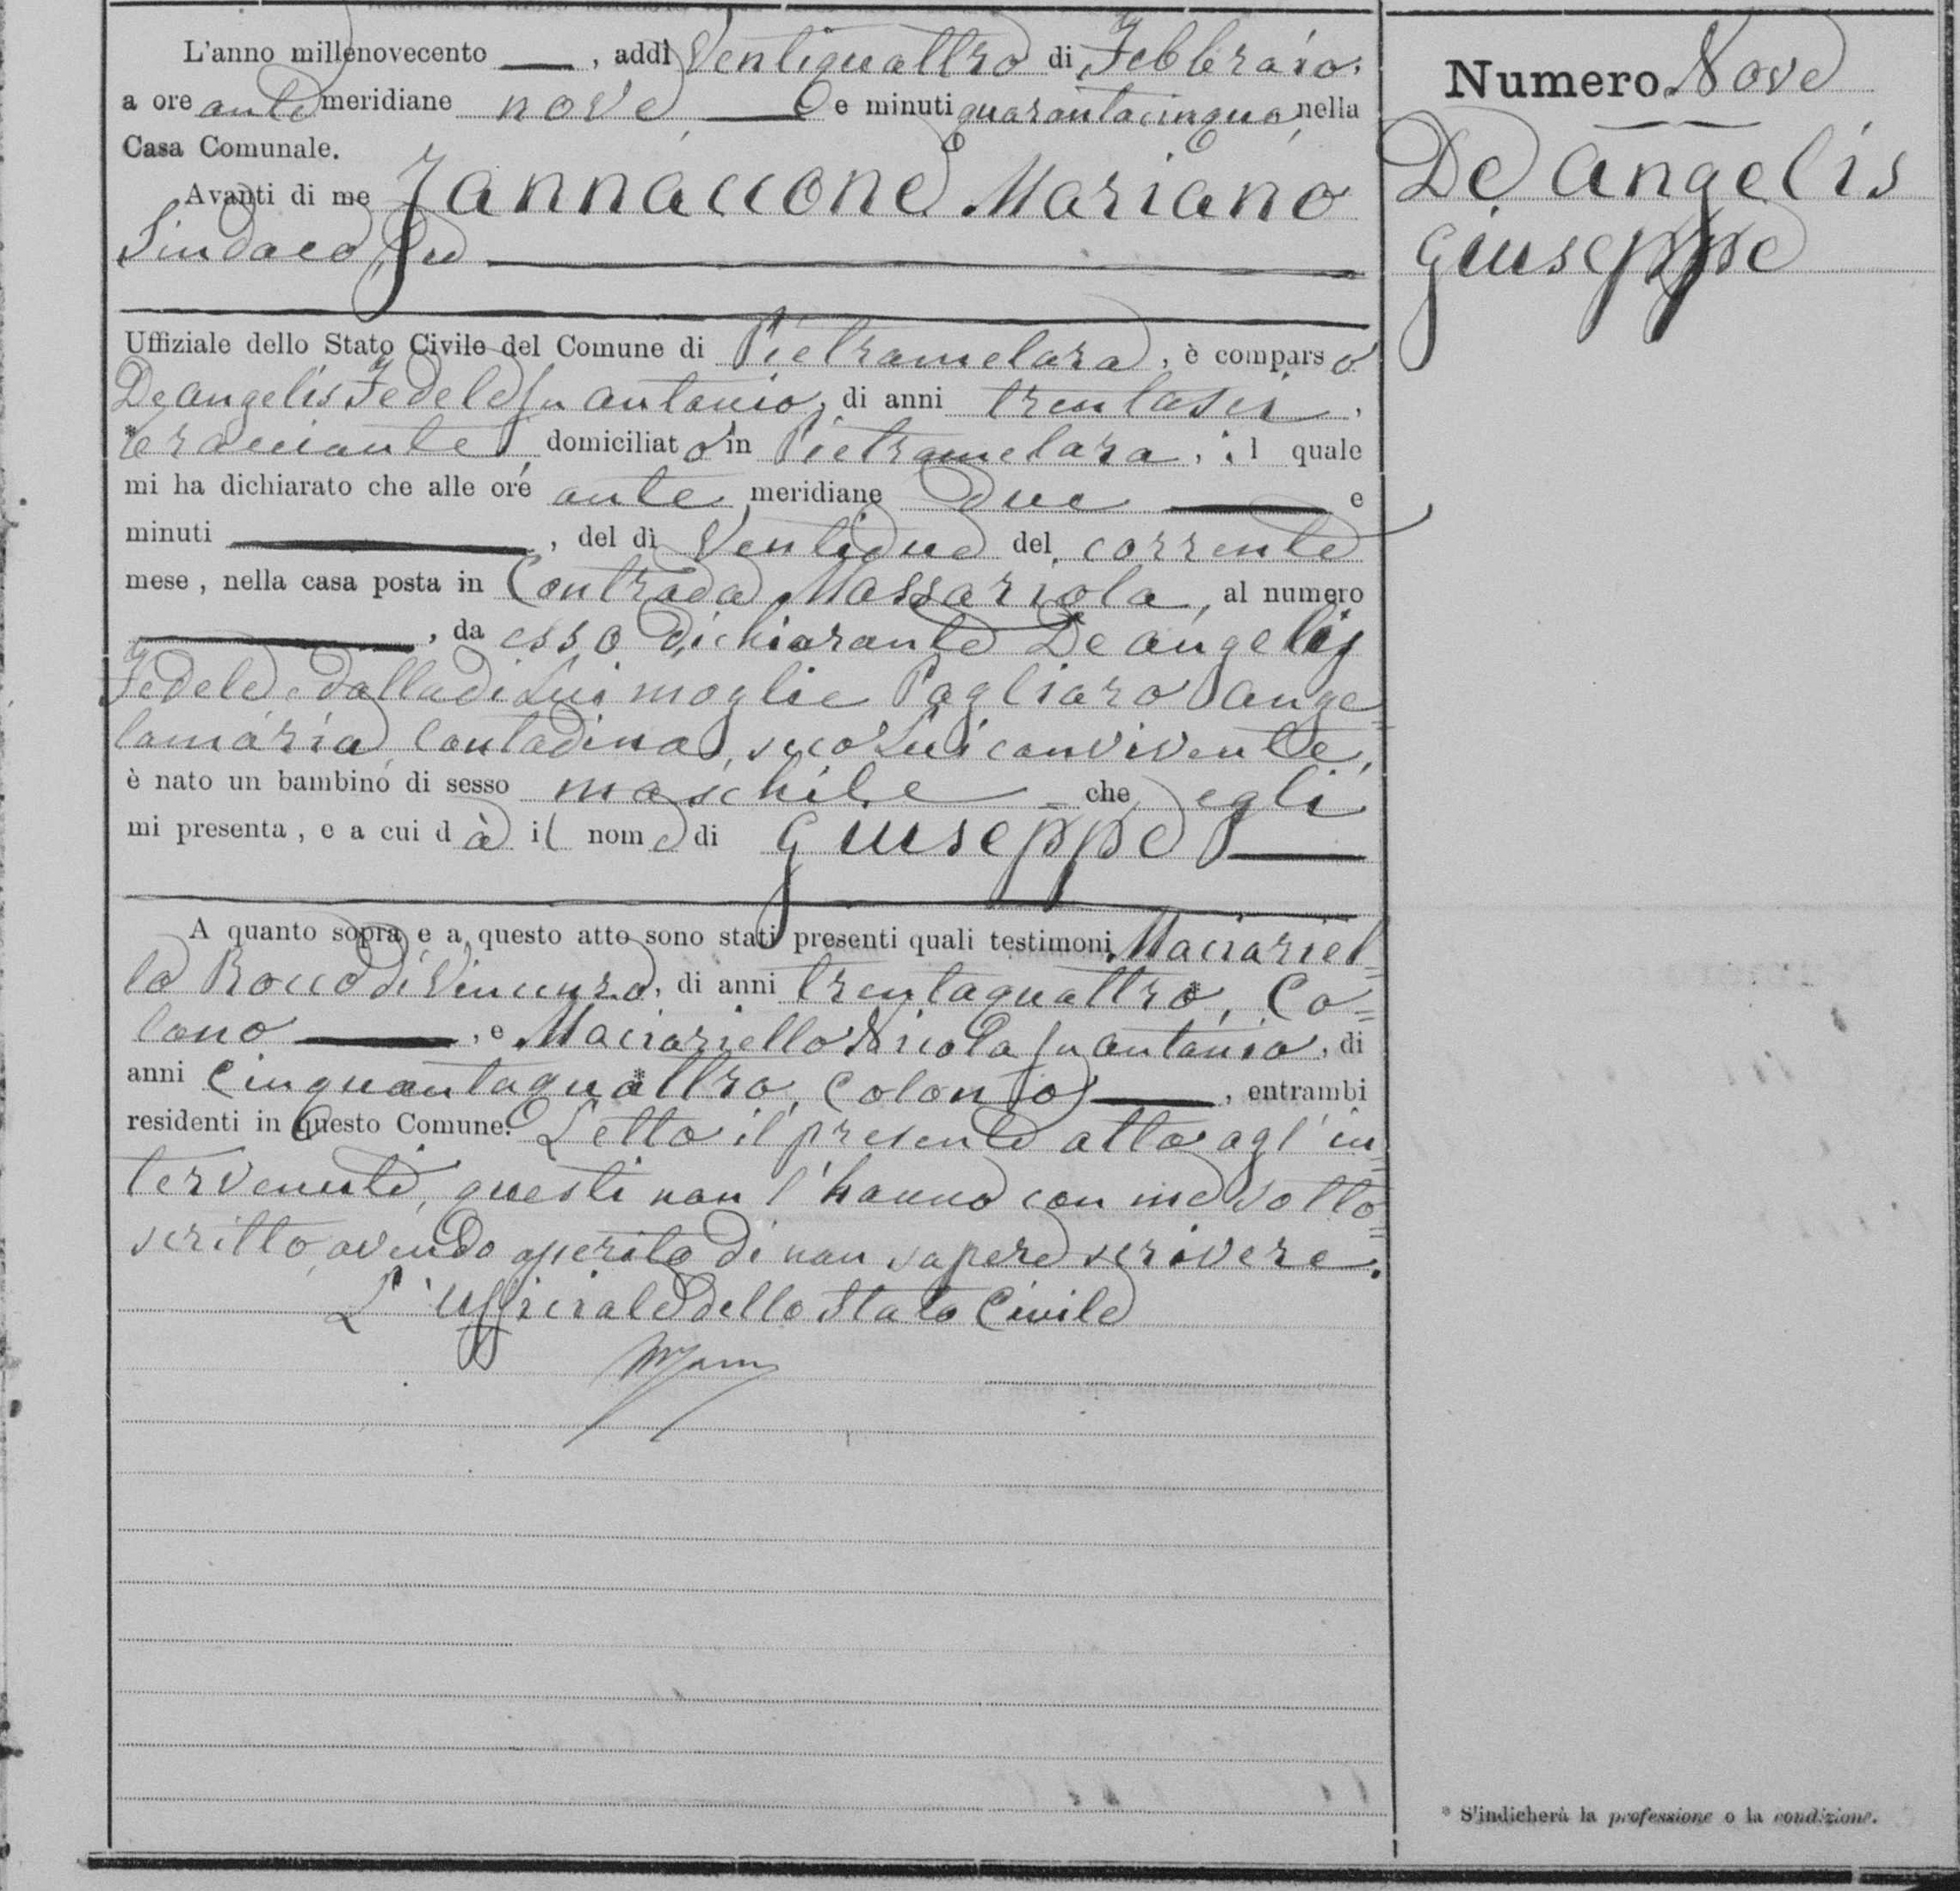 L'anno millenovecento —, addì Ventiquattro di Febbraio,
a ore ante meridiane nove — e minuti quarantacinque, nella
Casa Comunale.
Avanti di me Jannaccone Mariano
Sindaco, ed
Uffiziale dello Stato Civile del Comune di Pietramelara, è comparso
De angelis Fedele fu antonio, di anni trentasei,
* bracciante, domiciliato in Pietramelara, il quale
mi ha dichiarato che alle ore ante meridiane due — e
minuti —, del dì Ventidue del corrente
mese, nella casa posta in Contrada Massariola, al numero
—, da esso dichiarante De angelis
Fedele, e dalla di Lui moglie Pagliaro Ange=
lamaria, Contadina, seco Lui convivente,
è nato un bambino di sesso maschile che egli
mi presenta, e a cui dà il nome di Giuseppe —
A quanto sopra e a questo atto sono stati presenti quali testimoni Maciariel=
lo Rocco di Vincenzo, di anni trentaquattro, * Co=
lono —, e Maciariello Nicola fu antonio, di
anni Cinquantaquattro, * Colono —, entrambi
residenti in questo Comune. Letto il presente atto agl'in=
tervenuti, questi non l'hanno con me sotto=
scritto, avendo asserito di non sapere scrivere.
L'Uffiziale dello Stato Civile
Numero Nove
De angelis
Giuseppe
* S'indicherà la professione o la condizione.